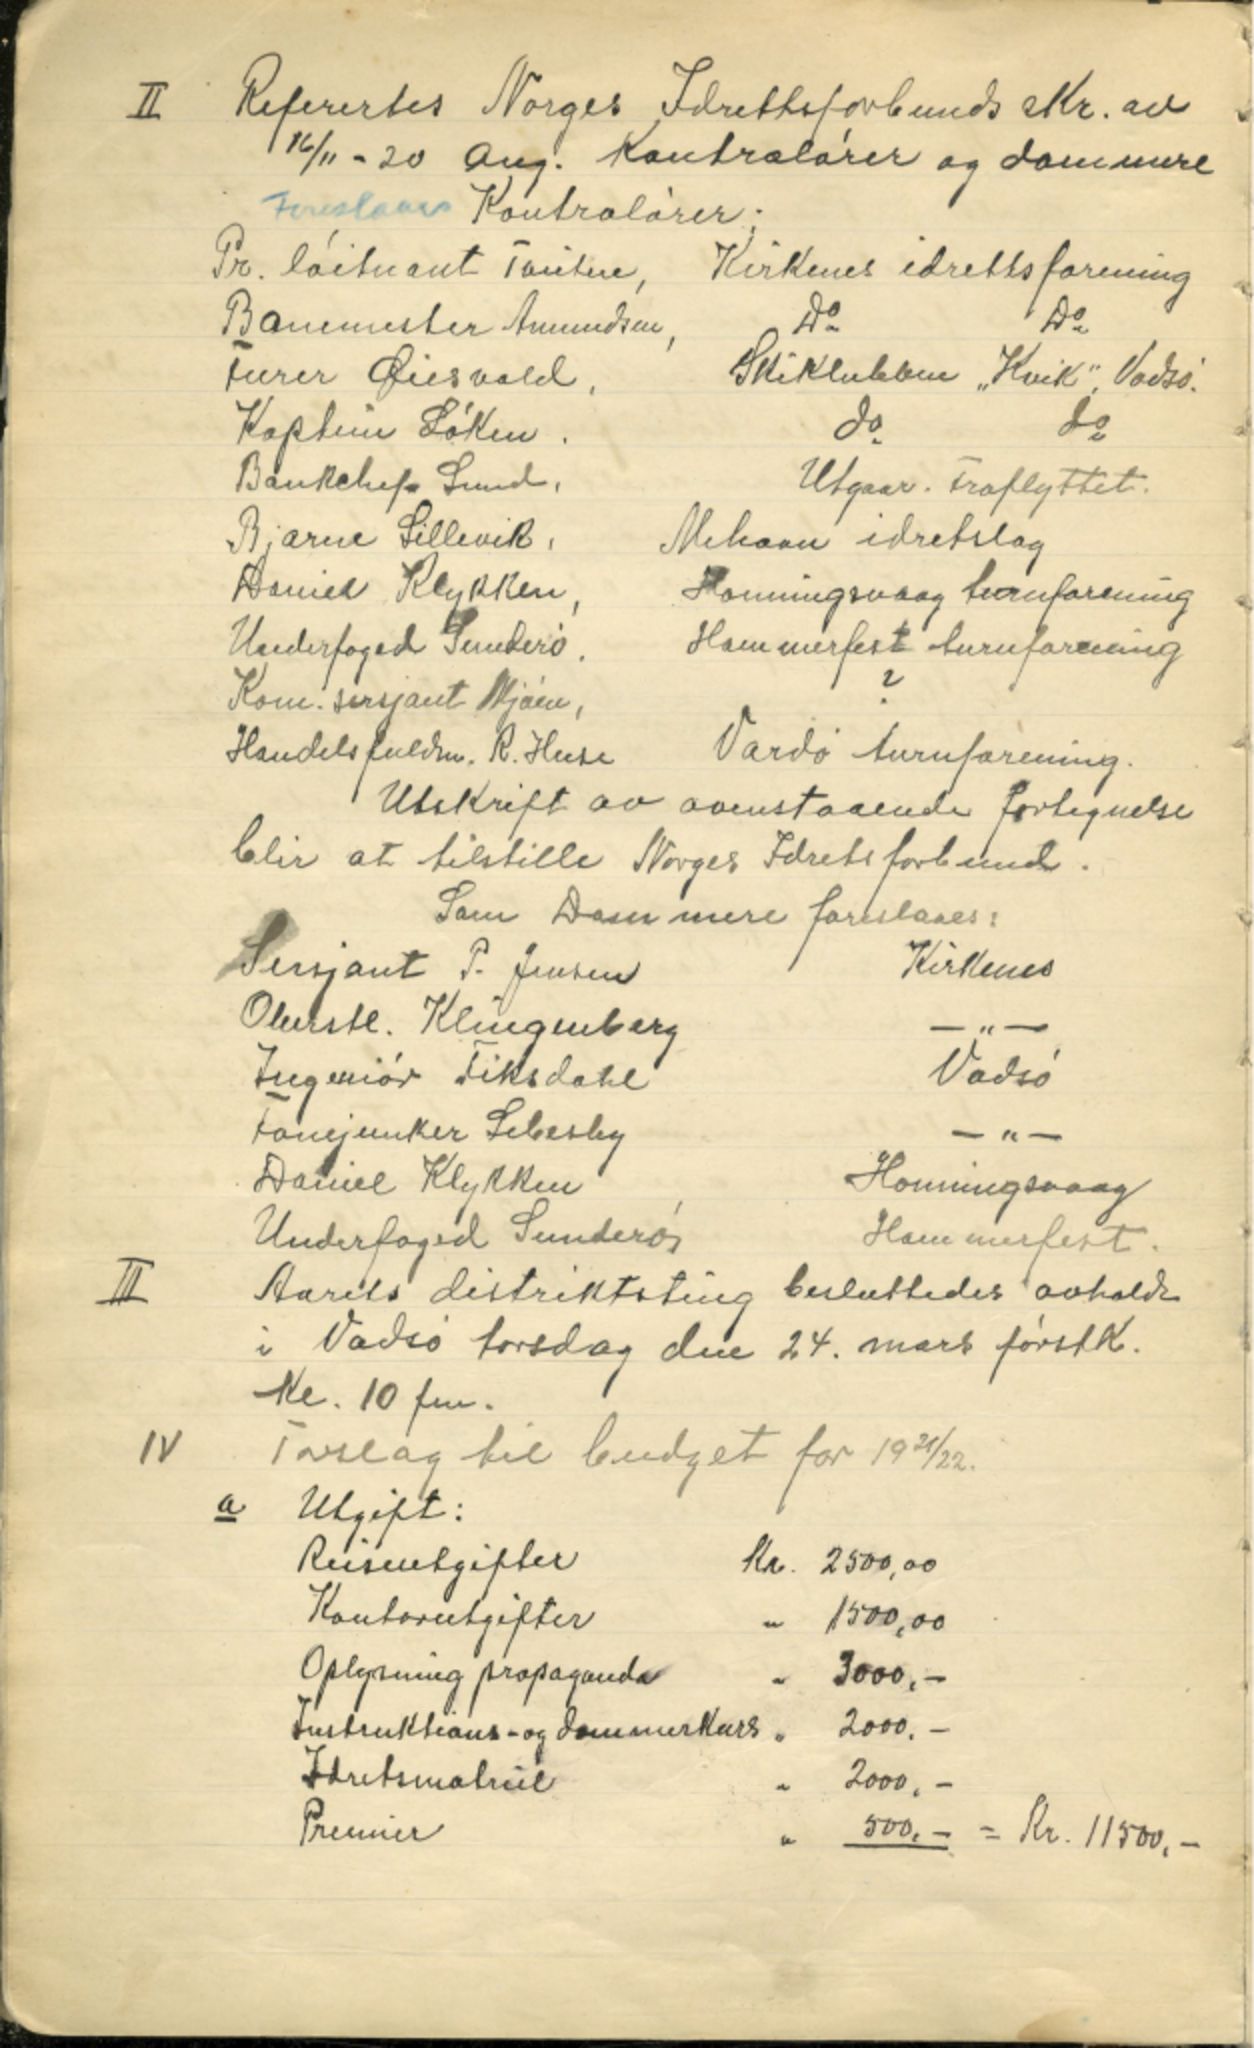 II Referertes Norges Idrettsforbunds skr. av
16/11 - 20 Ang. Kontrolører og dommere
Foreslaaes Kontrolører:
Pr. löitnant Kirkenes idrettsforening
Banemester Amundsen, Do Do
Furer Øiesvold, Skiklubben „Kvik", Vadsö.
Kaptein Löken. do do
Bankchef Lund, Utgaar. Fraflyttet.
Bjarne Lillevik, Mehavn idretslag
Daniel Klykken, Honningsvaag turnforening
Underfoged Sunderö. Hammerfest turnforening
Kom. sersjant Mjöen, ?
Handelsfuldm. R. Huse Vardö turnforening.
Utskrift av ovenstaaende fortegnelse
blir at tilstille Norges Idretsforbund.
Som Dommere foreslaaes:
Sersjant P. Jensen Kirkenes
Oberstl. Klingenberg — " —
Ingeniör Fiksdahl Vadsö
Fanejunker Lebesby — " —
Daniel Klykken Honningsvaag
Underfoged Sunderö, Hammerfest.
III Aarets distriktsting besluttedes avholdt
i Vadsö torsdag den 24. mars förstk.
kl. 10 fm.
IV Forslag til budget for 1921/22.
a Utgift:
Reiseutgifter Kr. 2500,00
Kontorutgifter " 1500,00
Oplysning propaganda " 3000,-
Instruktions- og dommerkurs " 2000.-
Idretsmatriel " 2000,-
Premier " 500,- = Kr. 11500,-